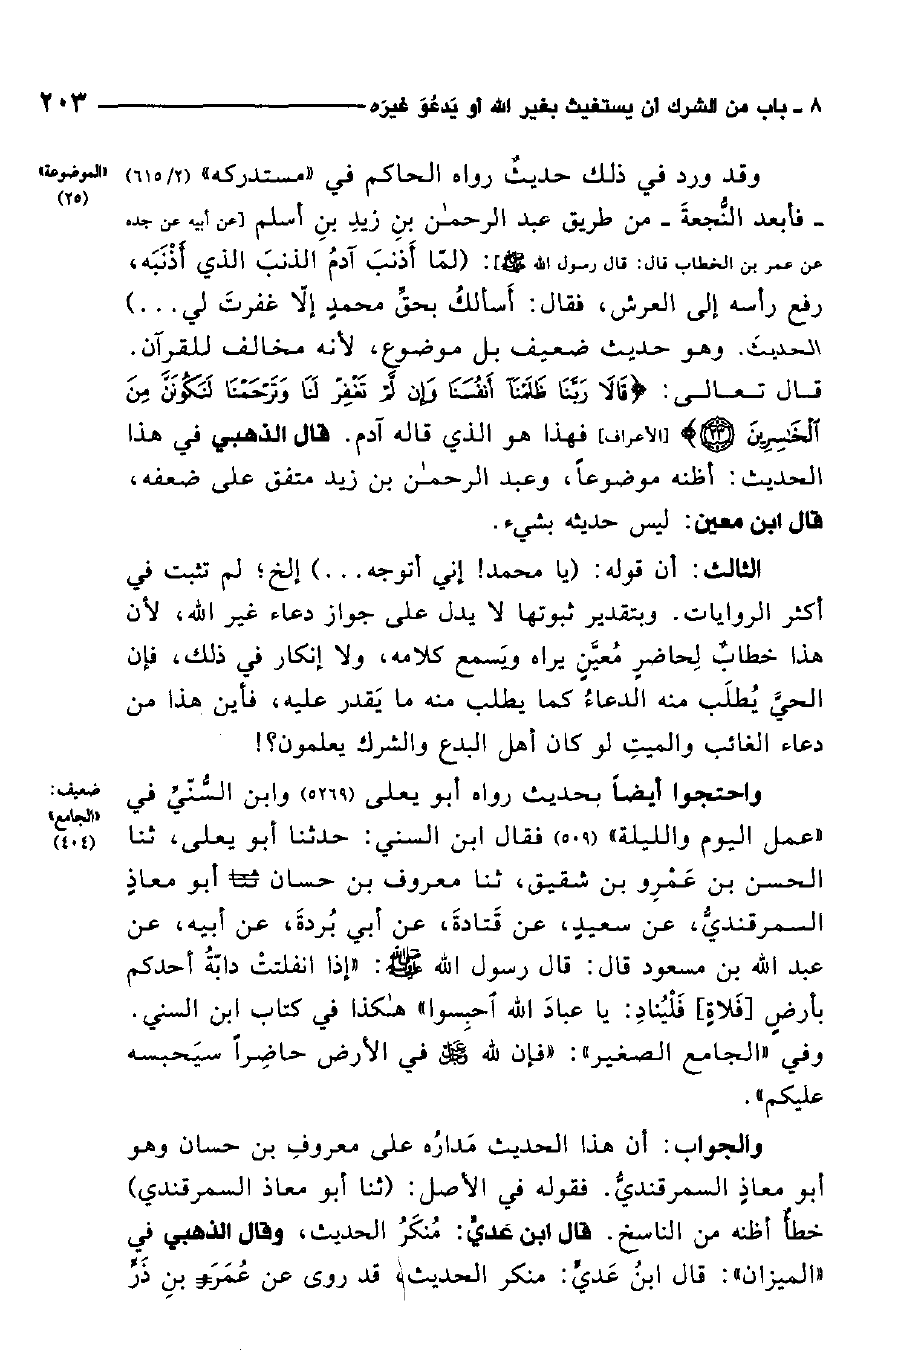 ٨ ـ باب من الشرك أن يستغيث بغير الله أو يَدعُوَ غيرَه ٢٠٣
وقد ورد في ذلك حديثٌ رواه الحاكم في «مستدركه» (٢/ ٦١٥)
«الموضوعة» (٢٥)
ـ فأبعد النُّجعةَ ـ من طريق عبد الرحمٰن بنِ زيدِ بنِ أسلم [عن أبيه عن جده
عن عمر بن الخطاب قال: قال رسول الله ﷺ]: (لمّا أَذنبَ آدمُ الذنبَ الذي أَذْنَبَه،
رفع رأسه إلى العرش، فقال: أَسألكُ بحقِّ محمدٍ إلّا غفرتَ لي...)
الحديثَ. وهو حديث ضعيف بل موضوع، لأنه مخالف للقرآن.
قال تعالى: ﴿قَالَا رَبَّنَا ظَلَمْنَآ أَنفُسَنَا وَإِن لَّمْ تَغْفِرْ لَنَا وَتَرْحَمْنَا لَنَكُونَنَّ مِنَ
ٱلْخَٰسِرِينَ ٢٣﴾ [الأعراف] فهذا هو الذي قاله آدم. قال الذهبي في هذا
الحديث: أظنه موضوعاً، وعبد الرحمٰن بن زيد متفق على ضعفه،
قال ابن معين: ليس حديثه بشيء.
الثالث: أن قوله: (يا محمد! إني أتوجه...) إلخ؛ لم تثبت في
أكثر الروايات. وبتقدير ثبوتها لا يدل على جواز دعاء غير الله، لأن
هذا خطابٌ لِحاضرٍ مُعيَّنٍ يراه ويَسمع كلامه، ولا إنكار في ذلك، فإن
الحيَّ يُطلَب منه الدعاءُ كما يطلب منه ما يَقدر عليه، فأين هذا من
دعاء الغائب والميتِ لو كان أهل البدع والشرك يعلمون؟!
واحتجوا أيضاً بحديث رواه أبو يعلى (٥٢٦٩) وابن السُّنّيِّ في
ضعيف: «الجامع» (٤٠٤)
«عمل اليوم والليلة» (٥٠٩) فقال ابن السني: حدثنا أبو يعلى، ثنا
الحسن بن عَمْرِو بن شقيق، ثنا معروف بن حسان ثنا أبو معاذٍ
السمرقنديُّ، عن سعيدٍ، عن قَتادةَ، عن أبي بُردةَ، عن أبيه، عن
عبد الله بن مسعود قال: قال رسول الله ﷺ: «إذا انفلتتْ دابّةُ أحدكم
بأرضِ [فَلاةٍ] فَلْيُنادِ: يا عبادَ الله ٱحبِسوا» هٰكذا في كتاب ابن السني.
وفي «الجامع الصغير»: «فإن لله ﷻ في الأرض حاضِراً سيَحبسه
عليكم».
والجواب: أن هذا الحديث مَدارُه على معروف بن حسان وهو
أبو معاذٍ السمرقنديُّ. فقوله في الأصل: (ثنا أبو معاذ السمرقندي)
خطأٌ أظنه من الناسخ. قال ابن عَديٍّ: مُنكَرُ الحديث، وقال الذهبي في
«الميزان»: قال ابنُ عَديٍّ: منكر الحديث، قد روى عن عُمَرَ بنِ ذَرٍّ